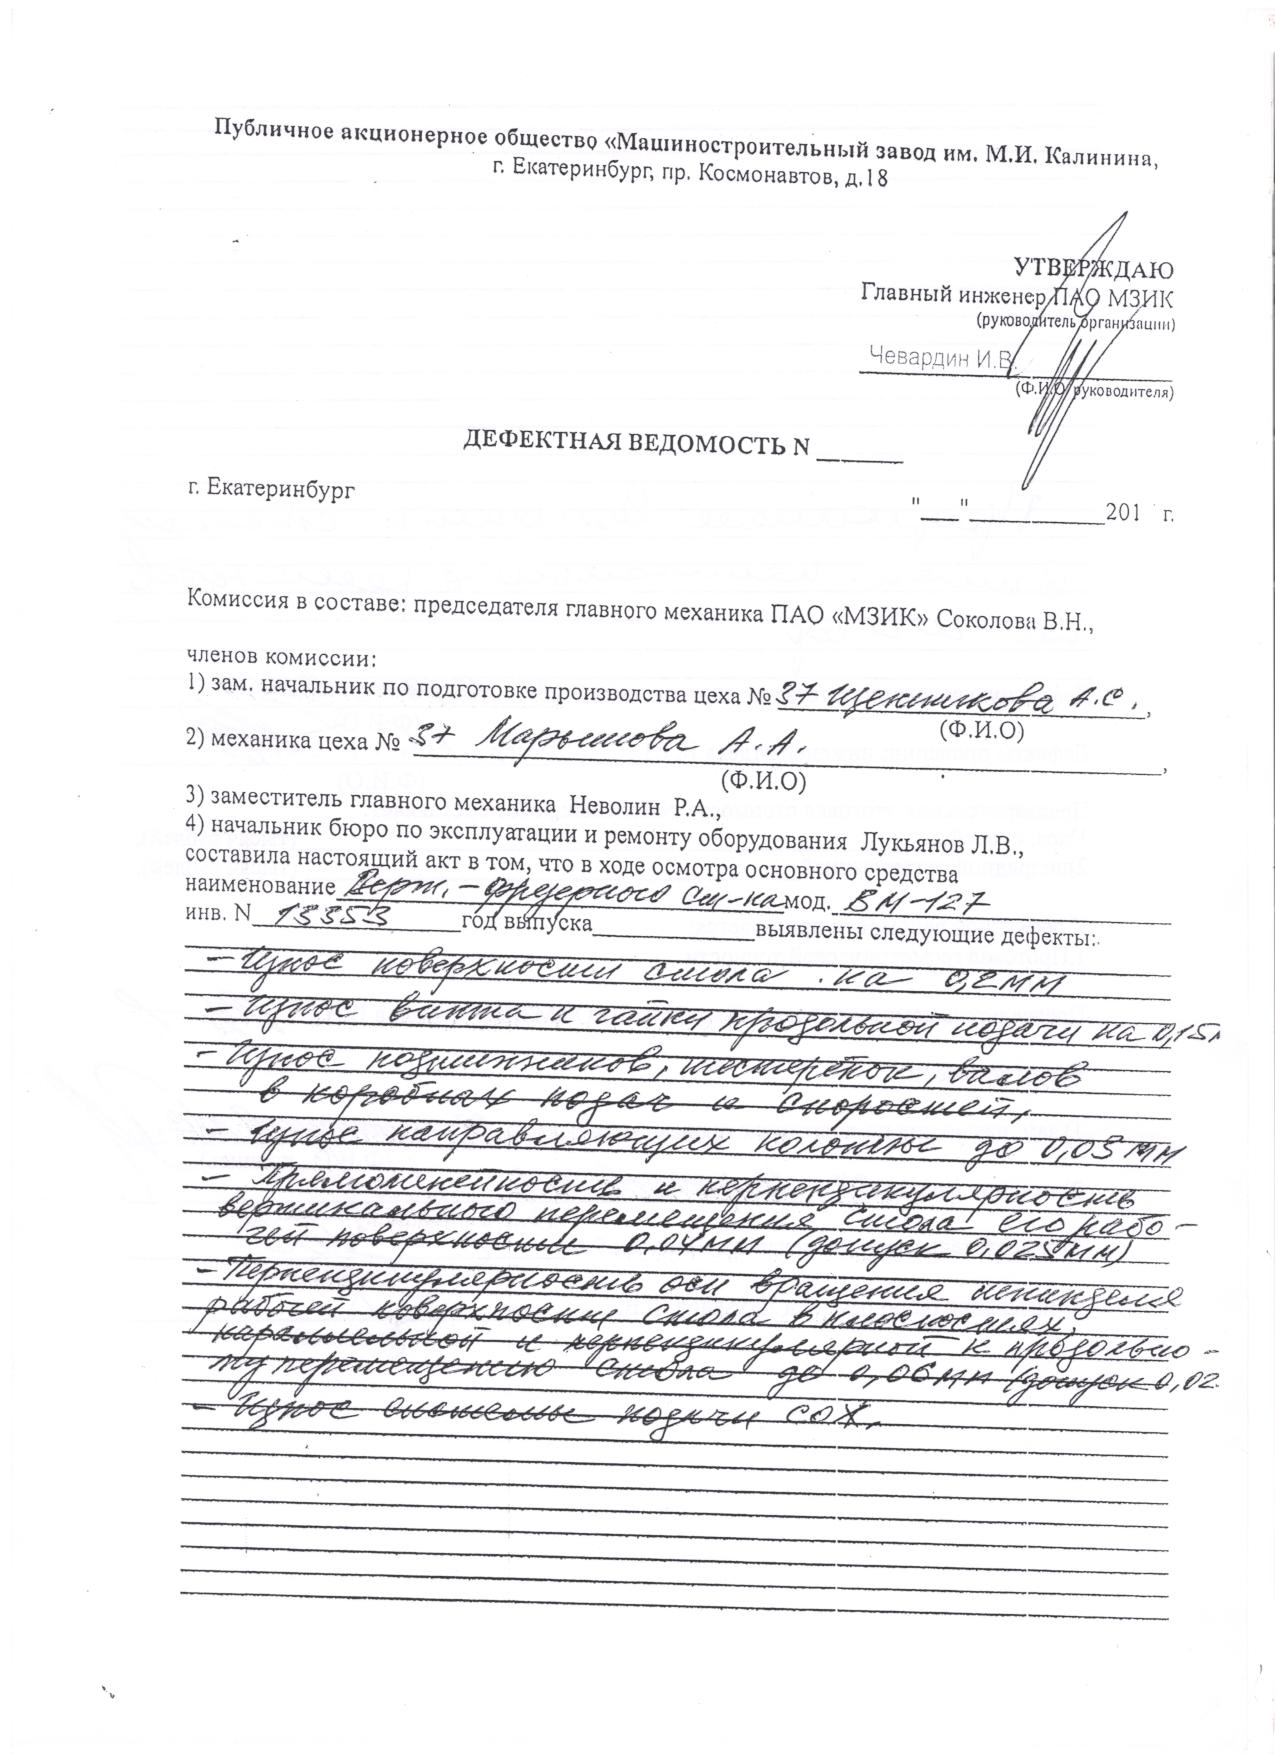 Публичное акционерное общество «Машиностроительный завод им. М.И. Калинина,
г. Екатеринбург, пр. Космонавтов, д.18
УТВЕРЖДАЮ
Главный инженер ПАО МЗИК
(руководитель организации)
Чевардин И.В.
(Ф.И.О руководителя)
ДЕФЕКТНАЯ ВЕДОМОСТЬ N ______
г. Екатеринбург
"___"__________201 г.
Комиссия в составе: председателя главного механика ПАО «МЗИК» Соколова В.Н.,
членов комиссии:
1) зам. начальник по подготовке производства цеха № 37 Щенникова А.С.,
(Ф.И.О)
2) механика цеха № 37 Марьинова А.А.,
(Ф.И.О)
3) заместитель главного механика Неволин Р.А.,
4) начальник бюро по эксплуатации и ремонту оборудования Лукьянов Л.В.,
составила настоящий акт в том, что в ходе осмотра основного средства
наименование Верт. - фрезерного ст-ка мод. ВМ-127
инв. N 13353 год выпуска____________выявлены следующие дефекты:
- Износ поверхности стола на 0,2мм
- Износ винта и гайки продольной подачи на 0,15м
- Износ подшипников, шестерёнок, валов
в коробках подач и скоростей,
- Износ направляющих колонны до 0,05мм
- Прямолинейность и перпендикулярность
вертикального перемещения стола его рабо-
чей поверхности 0,04мм (допуск 0,025мм)
- Перпендикулярность оси вращения шпинделя
рабочей поверхности стола в плоскостях,
параллельной и перпендикулярной к продольно-
му перемещению стола до 0,06мм (допуск 0,02
- Износ системы подачи СОЖ.